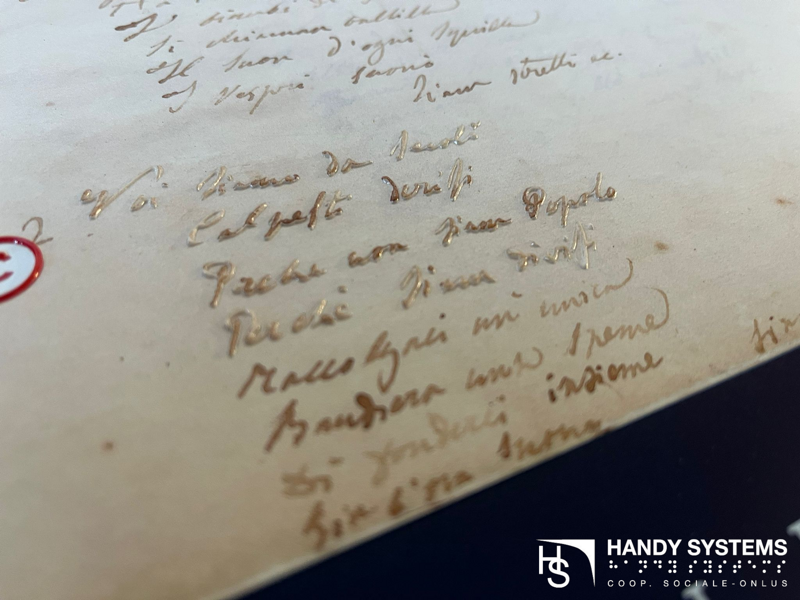 I bimbi d'
Si chiaman Balilla
Il suon d'ogni squilla
I Vespri suonò
Siam stretti ec.
2 Noi siamo da secoli
Calpesti derisi
Perchè non siam Popolo
Perchè siam divisi
Raccolgaci un'unica
Bandiera una speme
Di fonderci insieme
Già l'ora suonò
HANDY SYSTEMS
⠓⠁⠝⠙⠽ ⠎⠽⠎⠞⠑⠍⠎
COOP. SOCIALE-ONLUS